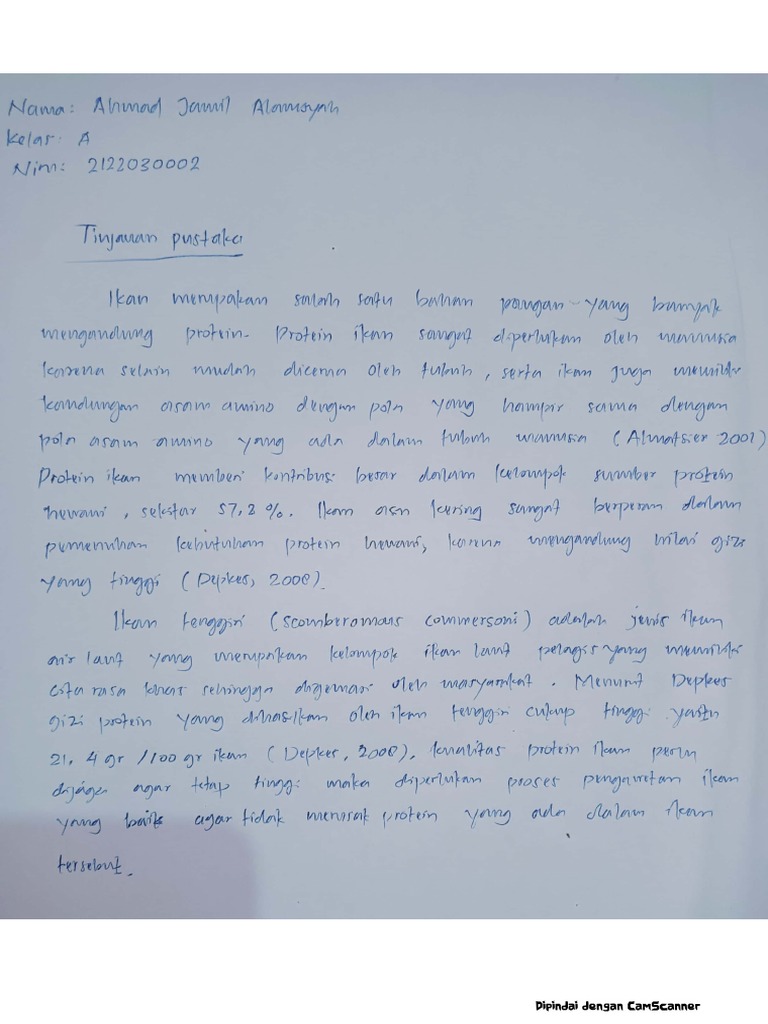 Nama: Ahmad Jamil Alamsyah
Kelas: A
Nim: 2122030002
Tinjauan pustaka
Ikan merupakan salah satu bahan pangan yang banyak
mengandung protein. Protein ikan sangat diperlukan oleh manusia
karena selain mudah dicerna oleh tubuh, serta ikan juga memiliki
kandungan asam amino dengan pola yang hampir sama dengan
pola asam amino yang ada dalam tubuh manusia (Almatsier 2001)
Protein ikan memberi kontribusi besar dalam kelompok sumber protein
hewani, sekitar 57,2 %. Ikan asin kering sangat berperan dalam
pemenuhan kebutuhan protein hewani, karena mengandung nilai gizi
yang tinggi (Depkes, 2000).
Ikan tenggiri (Scomberomous commersoni) adalah jenis ikan
air laut yang merupakan kelompok ikan laut pelagis yang memiliki
cita rasa khas sehingga digemari oleh masyarakat. Menurut Depkes
gizi protein yang dihasilkan oleh ikan tenggiri cukup tinggi yaitu
21,4 gr /100 gr ikan (Depkes, 2000), kualitas protein ikan perlu
dijaga agar tetap tinggi maka diperlukan proses pengawetan ikan
yang baik agar tidak merusak protein yang ada dalam ikan
tersebut.
Dipindai dengan CamScanner